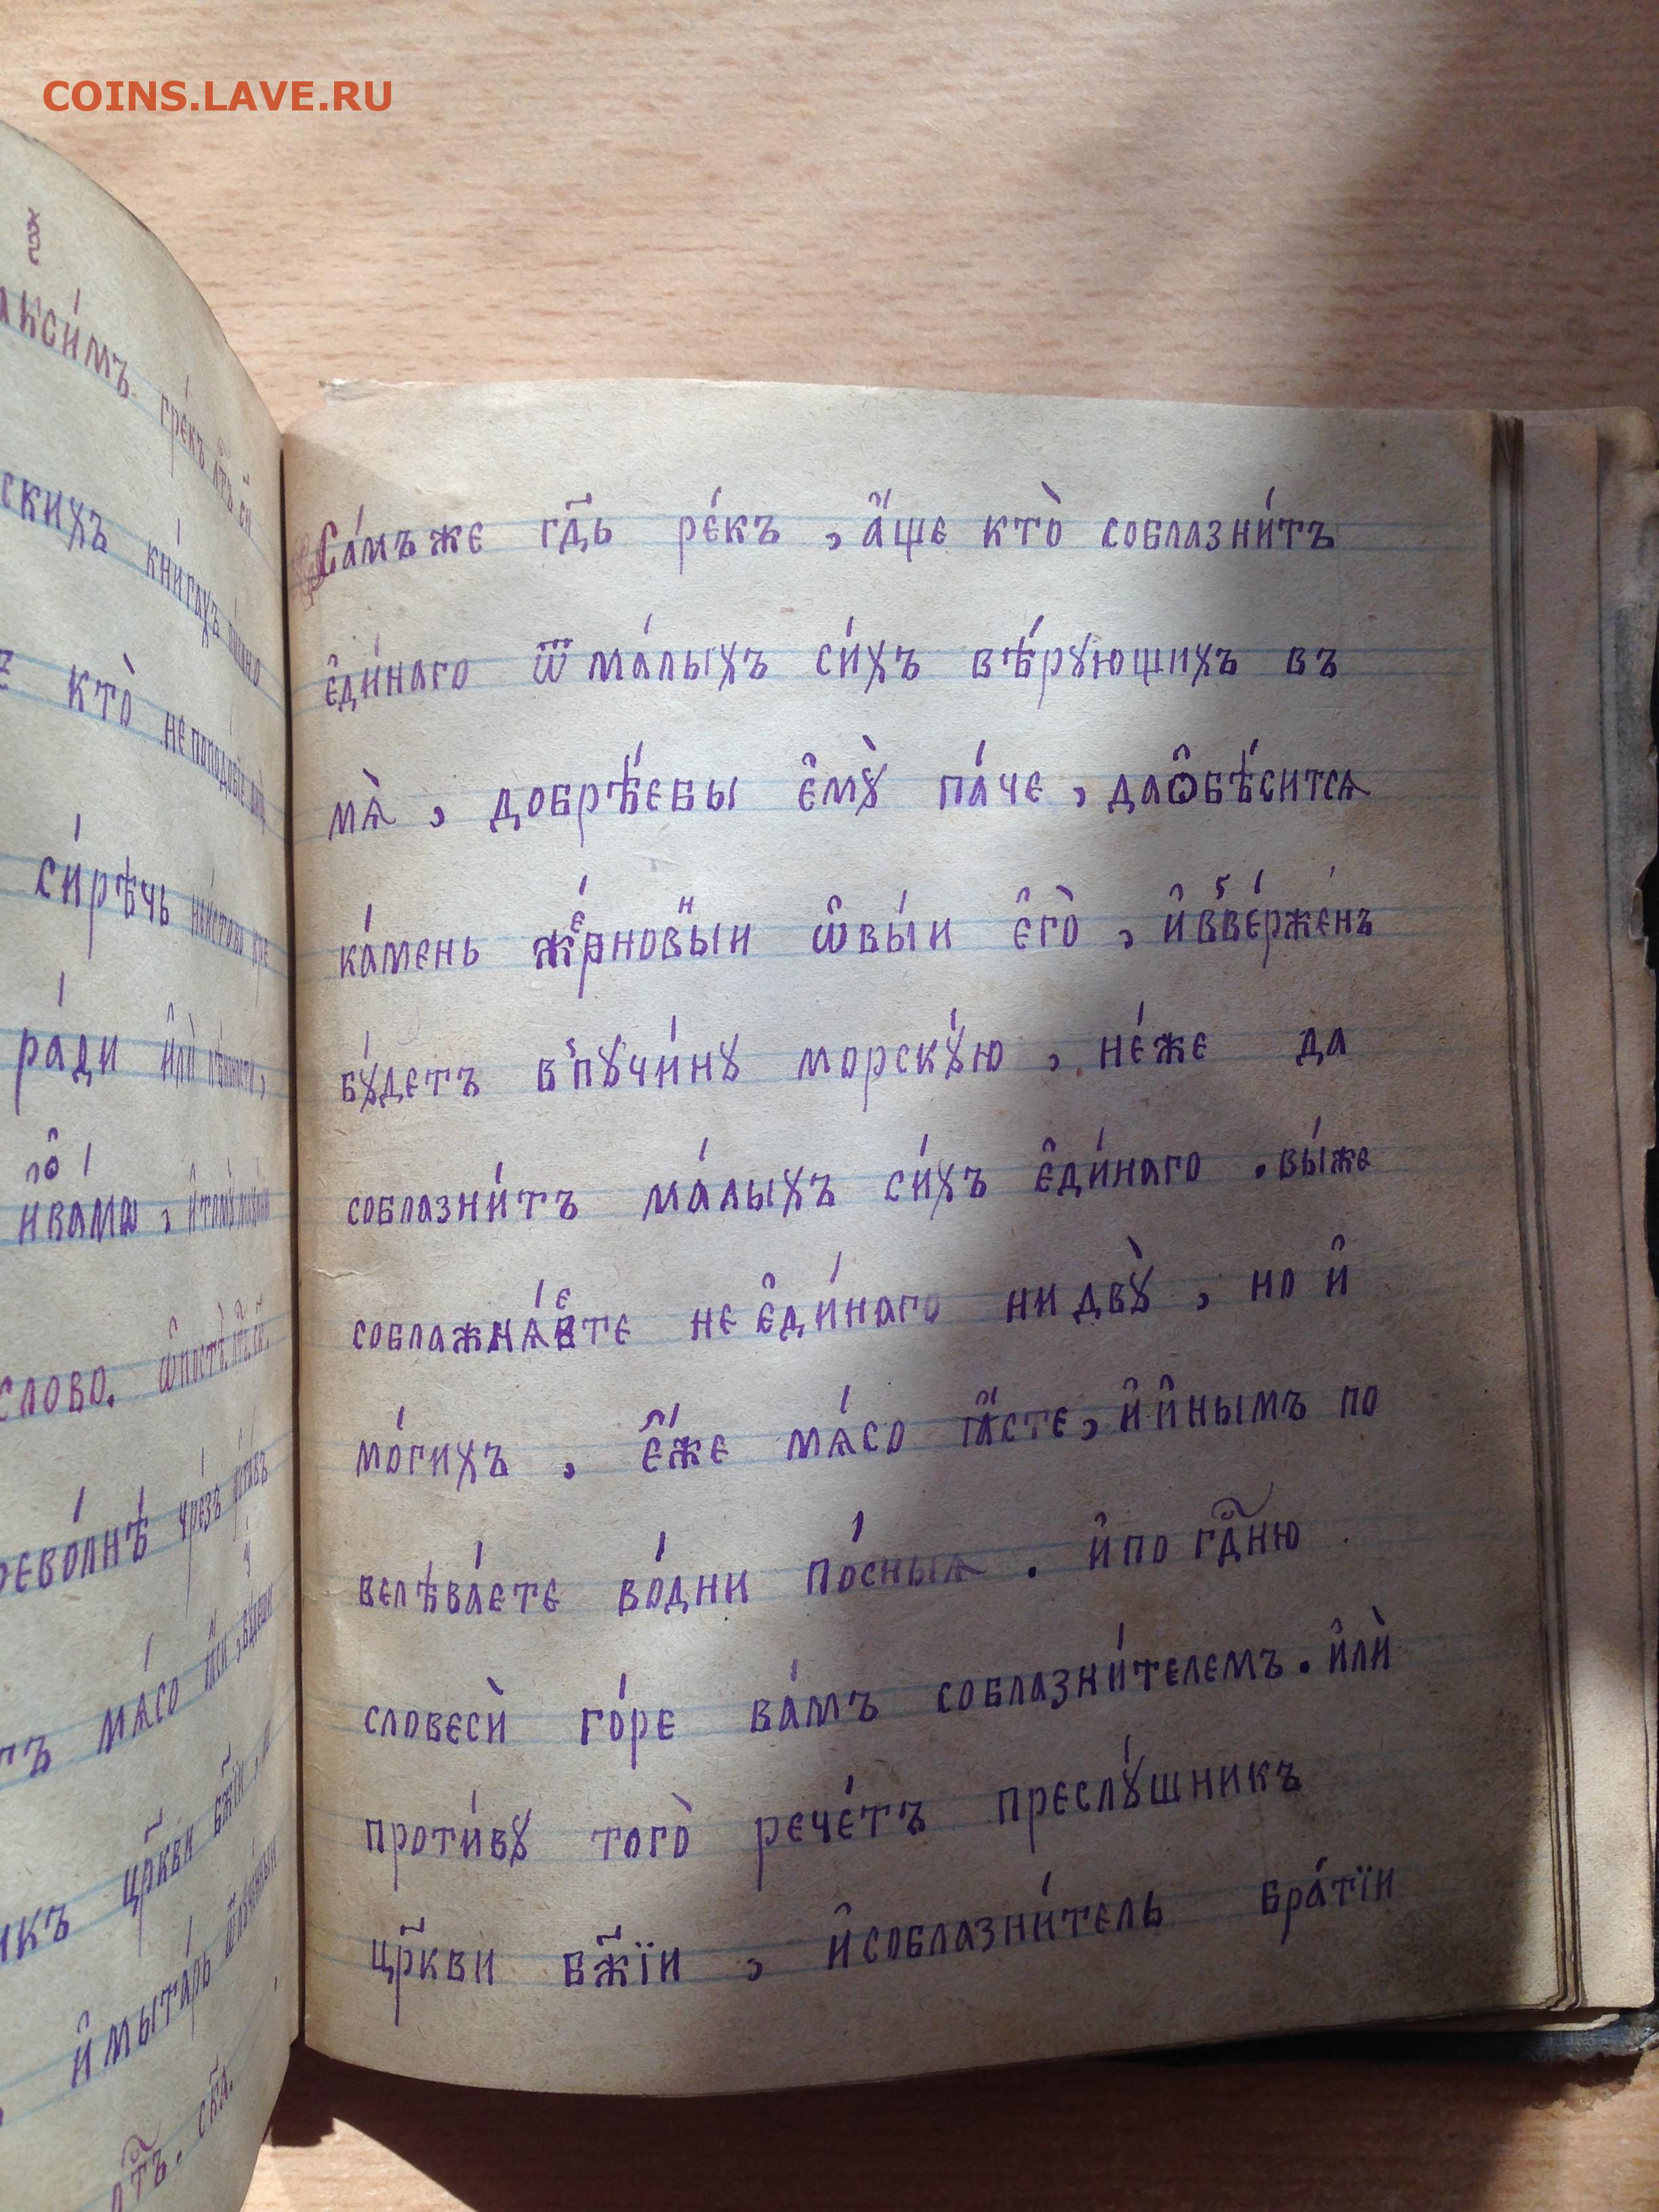 COINS.LAVE.RU
ѯ҃є
аѯи́мъ. гре́къ
скихъ кни́гахъ
кто̀ неподо́бїе
си́рѣчь неи́стово
ра́ди и҆лѝ
и҆ва́мѡ,
слово.
ево́лнѣ чре́зъ
тъ мѧ́со ꙗ҆́си, бꙋдеши
икъ цр҃кви бж҃їи,
и҆мыта́рь
ск҃а.
Са́мъже гд҃ь ре́къ, а҆́ще кто̀ соблазни́тъ
є҆ди́наго ѿма́лыхъ си́хъ вѣ́рꙋющихъ въ
мѧ̀, добрѣ́єбы є҆мꙋ̀ па́че, даѻ҆бѣ́ситсѧ
ка́мень же́рновныи ѡ҆вы́и є҆го̀, и҆вве́рженъ
бꙋ́детъ впꙋчи́нꙋ морскꙋ́ю, не́же да
соблазни́тъ ма́лыхъ си́хъ є҆ди́наго. вы́же
соблажнѧ́ете не є҆ди́наго ни двꙋ̀, но и҆
мо́гихъ, є҆́же мѧ́со ꙗ҆́сте, и҆и҆нымъ по
велѣва́ете во́дни по́сныѧ. и҆по гд҃ню
словесѝ го́ре ва́мъ соблазни́телемъ. и҆лѝ
проти́вꙋ того̀ рече́тъ преслꙋ́шникъ
цр҃кви бж҃їи, и҆соблазни́тель бра́тїи